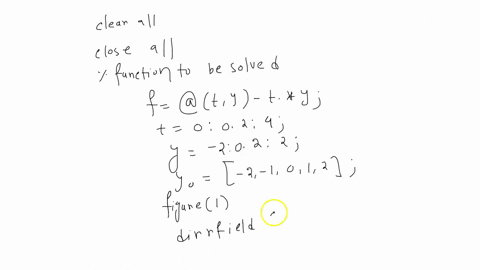 clear all
close all
% function to be solved
f= @(t,y) - t.*y;
t = 0:0.2:4;
y = -2:0.2:2;
y0 = [-2,-1, 0, 1, 2];
figure(1)
dirrfield